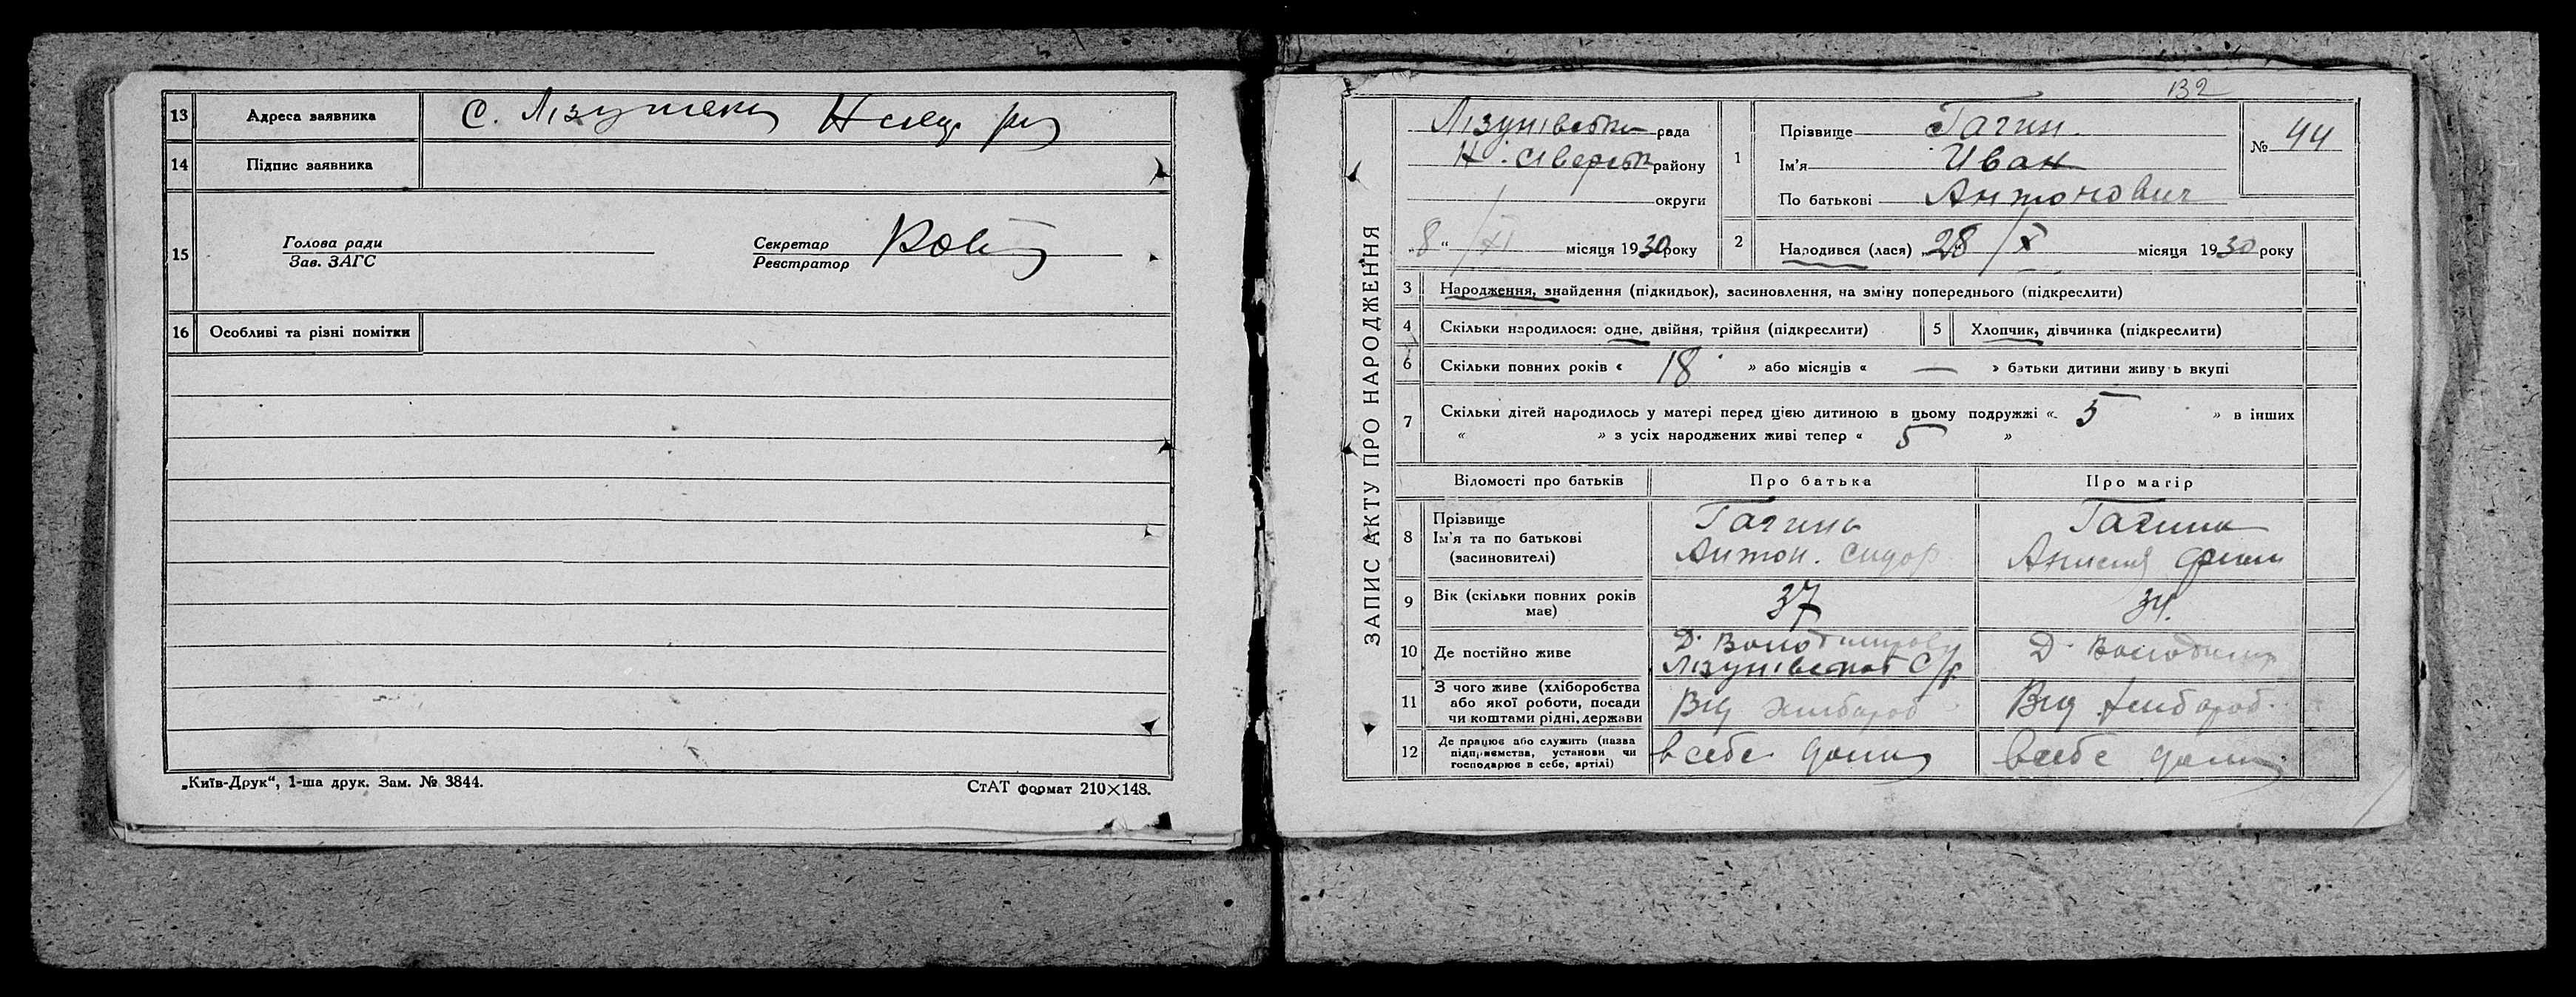 13 Адреса заявника с. Лізунівка
14 Підпис заявника
15 Голова ради
Зав. ЗАГС
Секретар
Реєстратор
16 Особливі та різні помітки
„Київ-Друк“, 1-ша друк. Зам. № 3844.
СтАТ формат 210×148.
132
ЗАПИС АКТУ ПРО НАРОДЖЕННЯ
Лізунівська рада
Н. Сіверськ району
округи
„8“ / XI місяця 1930 року
1 Прізвище Гагин
Ім'я Иван
По батькові Антонович
№ 44
2 Народився (лася) 28 / X місяця 1930 року
3 Народження, знайдення (підкидьок), засиновлення, на зміну попереднього (підкреслити)
4 Скільки народилося: одне, двійня, трійня (підкреслити) 5 Хлопчик, дівчинка (підкреслити)
6 Скільки повних років « 18 » або місяців « — » батьки дитини живуть вкупі
7 Скільки дітей народилось у матері перед цією дитиною в цьому подружжі « 5 » в інших
« » з усіх народжених живі тепер « 5 »
Відомості про батьків Про батька Про матір
8 Прізвище
Ім'я та по батькові
(засиновителі)
Антон. Сидор
9 Вік (скільки повних років
має)
37
34.
10 Де постійно живе
Д. Володимирову
Лізунівської С/р.
Д. Володимир
11 З чого живе (хліборобства
або якої роботи, посади
чи коштами рідні, держави
Від хлібороб
Від хлібороб.
12 Де працює або служить (назва
підприємства, установи чи
господарює в себе, артілі)
в себе дома
в себе дома